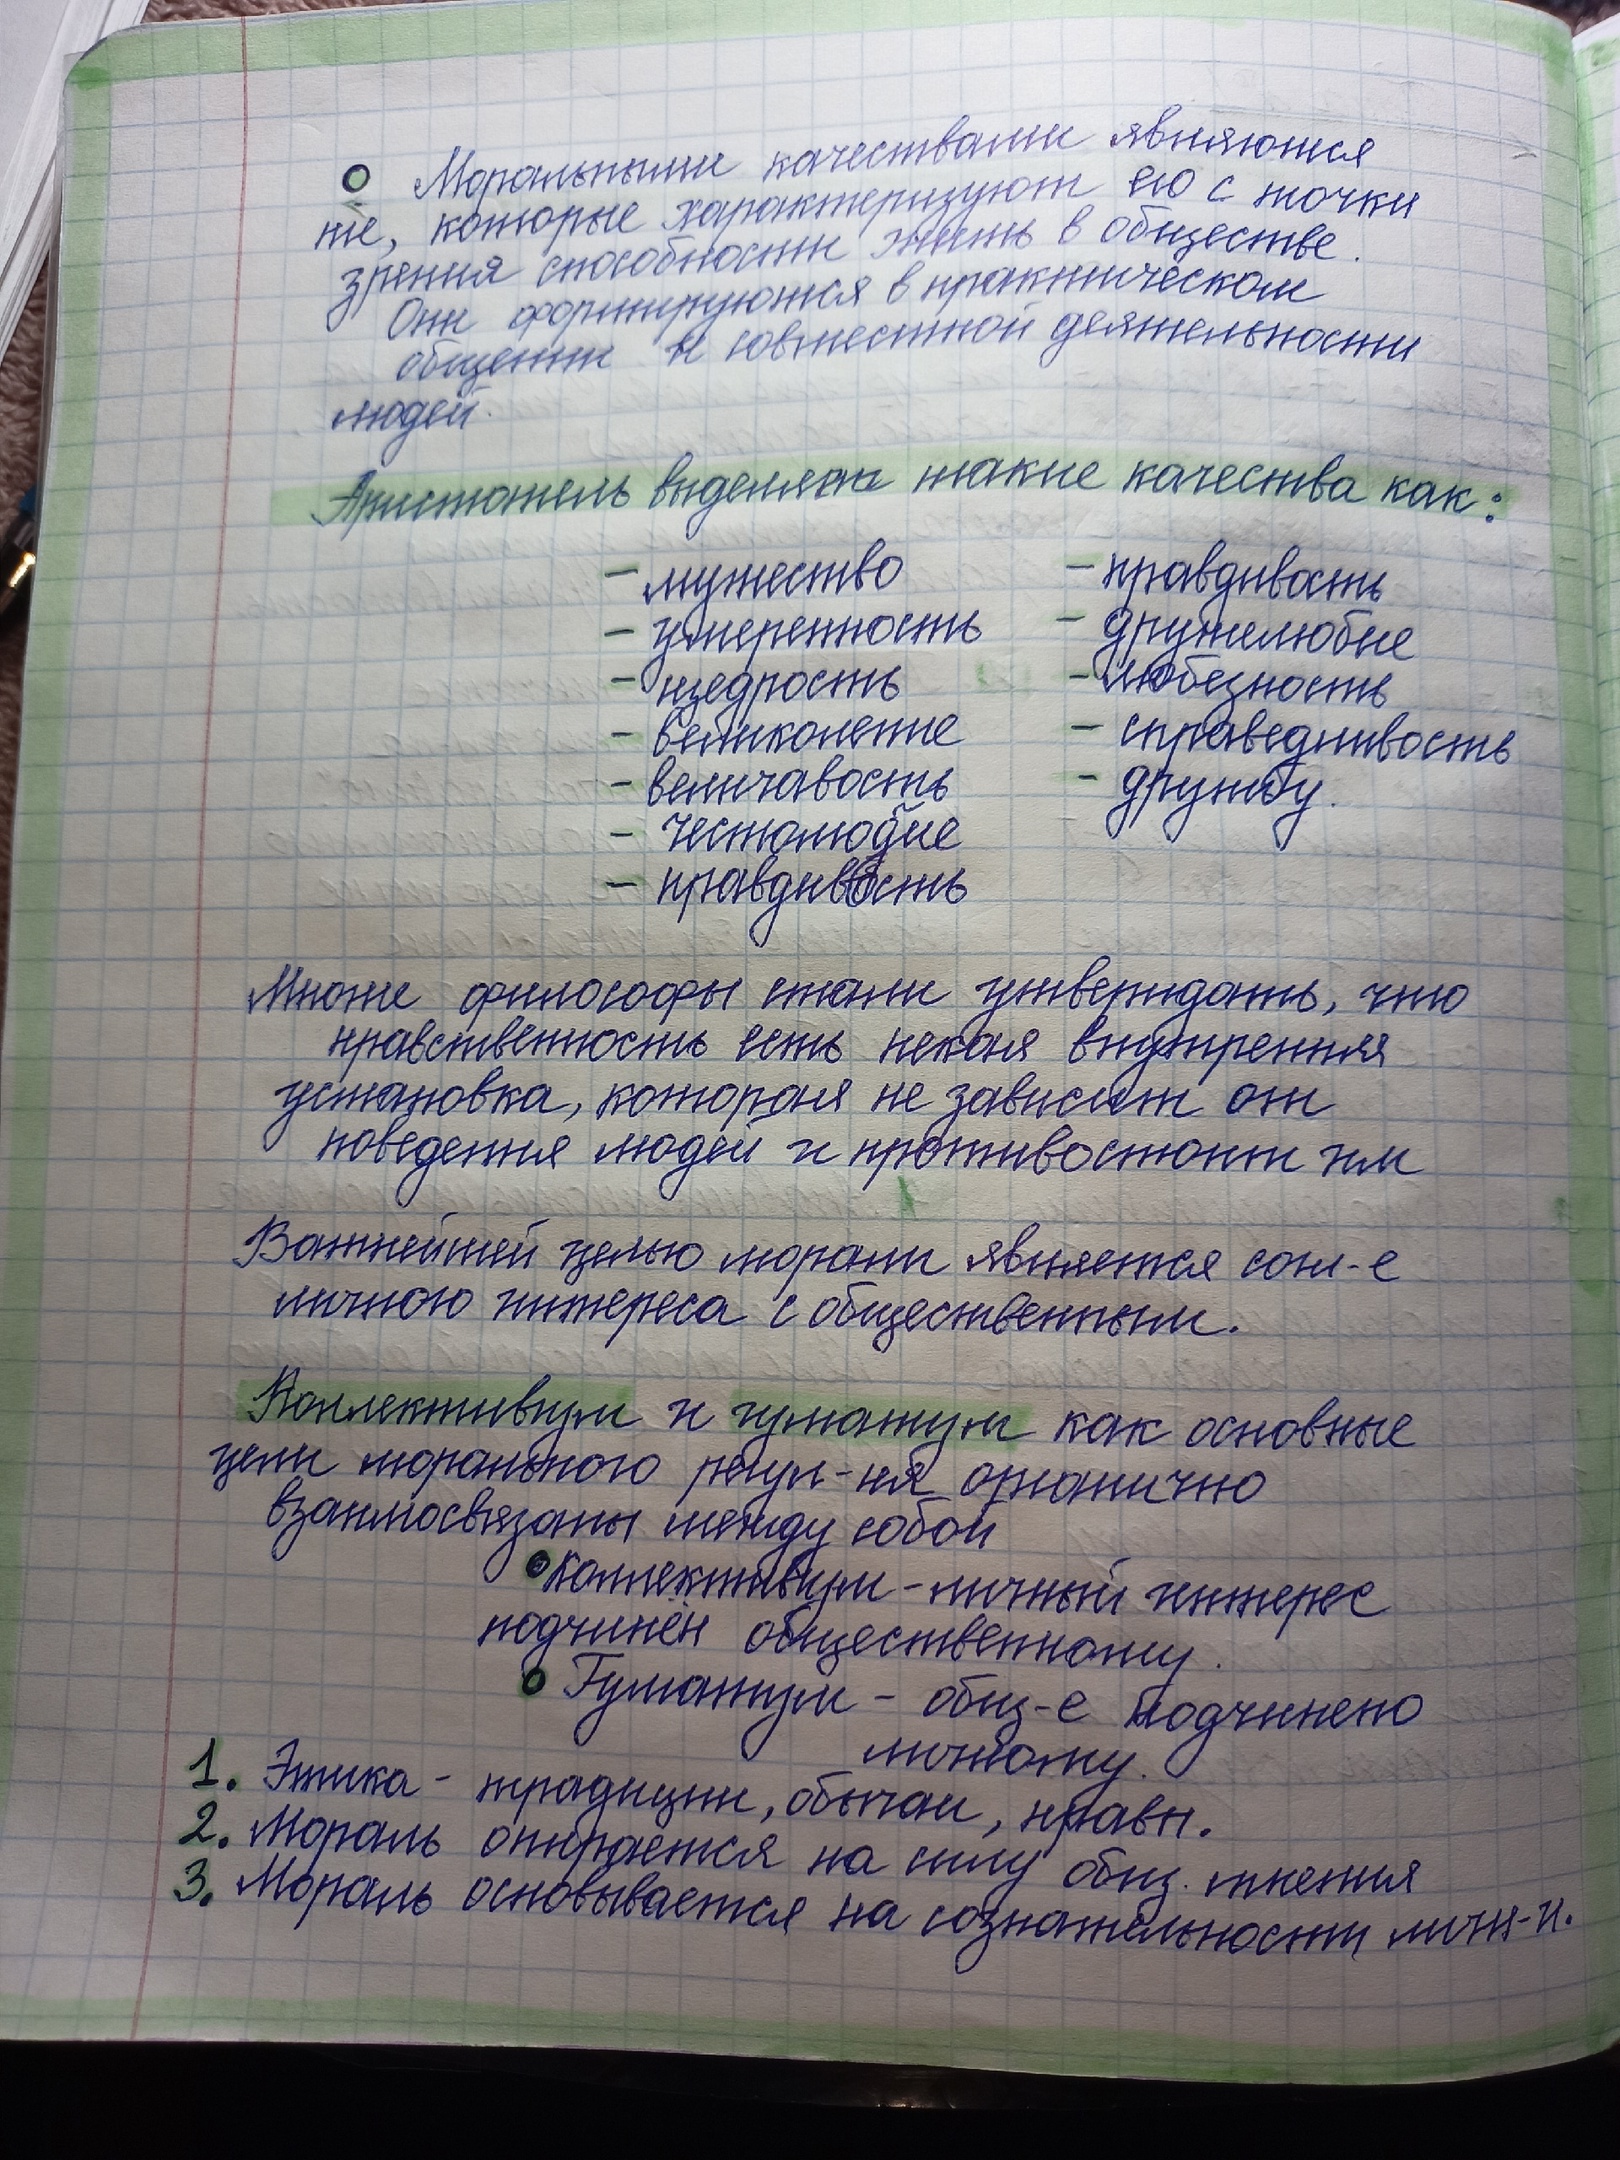 Моральными качествами являются
те, которые характеризуют его с точки
зрения способности жить в обществе.
Они формируются в практическом
общении и совместной деятельности
людей.
Аристотель выделяет такие качества как:
- мужество
- умеренность
- щедрость
- великолепие
- величавость
- честолюбие
- правдивость
- правдивость
- дружелюбие
- любезность
- справедливость
- дружбу.
Многие философы стали утверждать, что
нравственность есть некая внутренняя
установка, которая не зависит от
поведения людей и противостоит им
Важнейшей целью морали является согл-е
личного интереса с общественным.
Коллективизм и гуманизм как основные
цели морального регул-ия органично
взаимосвязаны между собой
Коллективизм - личный интерес
подчинён общественному.
Гуманизм - общ-е подчинено
личному.
1. Этика - традиции, обычаи, нравы.
2. Мораль опирается на силу общ. мнения
3. Мораль основывается на сознательности личн-и.